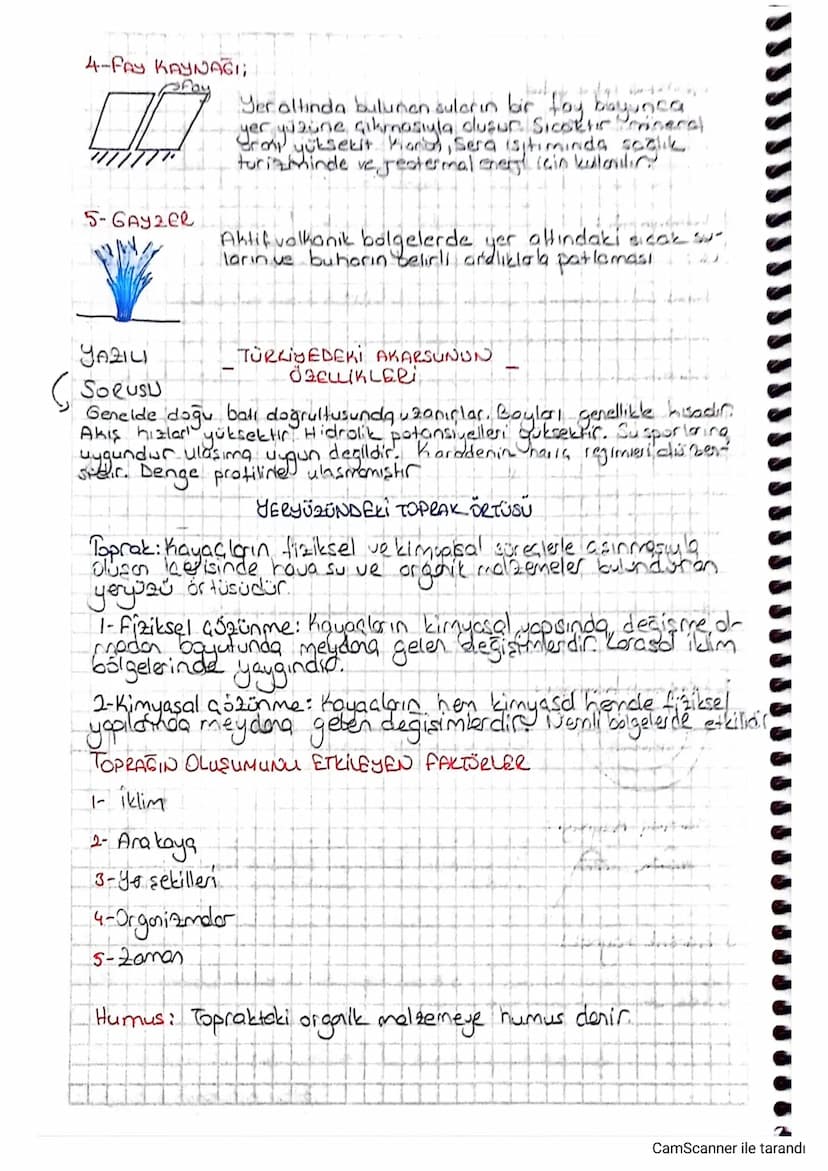 4-FAY KAYNAĞI;
Fay
Yer altında bulunan suların bir fay boyunca
yer yüzüne çıkmasıyla oluşur. Sıcaktır mineral
oranı yüksektir. Kaplıca, Sera ısıtımında sağlık
turizminde ve jeotermal enerji için kullanılır.
5-GAYZER
Aktif volkanik bölgelerde yer altındaki sıcak su-
ların ve buharın belirli aralıklarla patlaması
YAZILI
SORUSU
- TÜRKİYEDEKİ AKARSUNUN -
ÖZELLİKLERİ
Genelde doğu batı doğrultusunda uzanırlar. Boyları genellikle kısadır.
Akış hızları yüksektir. Hidrolik potansiyelleri yüksektir. Su sporlarına
uygundur ulaşıma uygun değildir. Karadenin hariç rejimleri düzen-
sizdir. Denge profiline ulaşmamıştır
YERYÜZÜNDEKİ TOPRAK ÖRTÜSÜ
Toprak: Kayaçların fiziksel ve kimyasal süreçlerle aşınmasıyla
oluşan içerisinde hava su ve organik malzemeler bulunduran
yeryüzü örtüsüdür.
1-Fiziksel çözünme: Kayaçların kimyasal yapısında değişme ol-
madan boyutunda meydana gelen değişimlerdir. Karasal iklim
bölgelerinde yaygındır.
2-Kimyasal çözünme: Kayaçların hem kimyasal hemde fiziksel
yapılarında meydana gelen değişimlerdir. Nemli bölgelerde etkilidir
TOPRAĞIN OLUŞUMUNU ETKİLEYEN FAKTÖRLER
1- İklim
2- Ara kaya
3-Yer şekilleri
4-Organizmalar
5-Zaman
Humus: Topraktaki organik malzemeye humus denir.
CamScanner ile tarandı